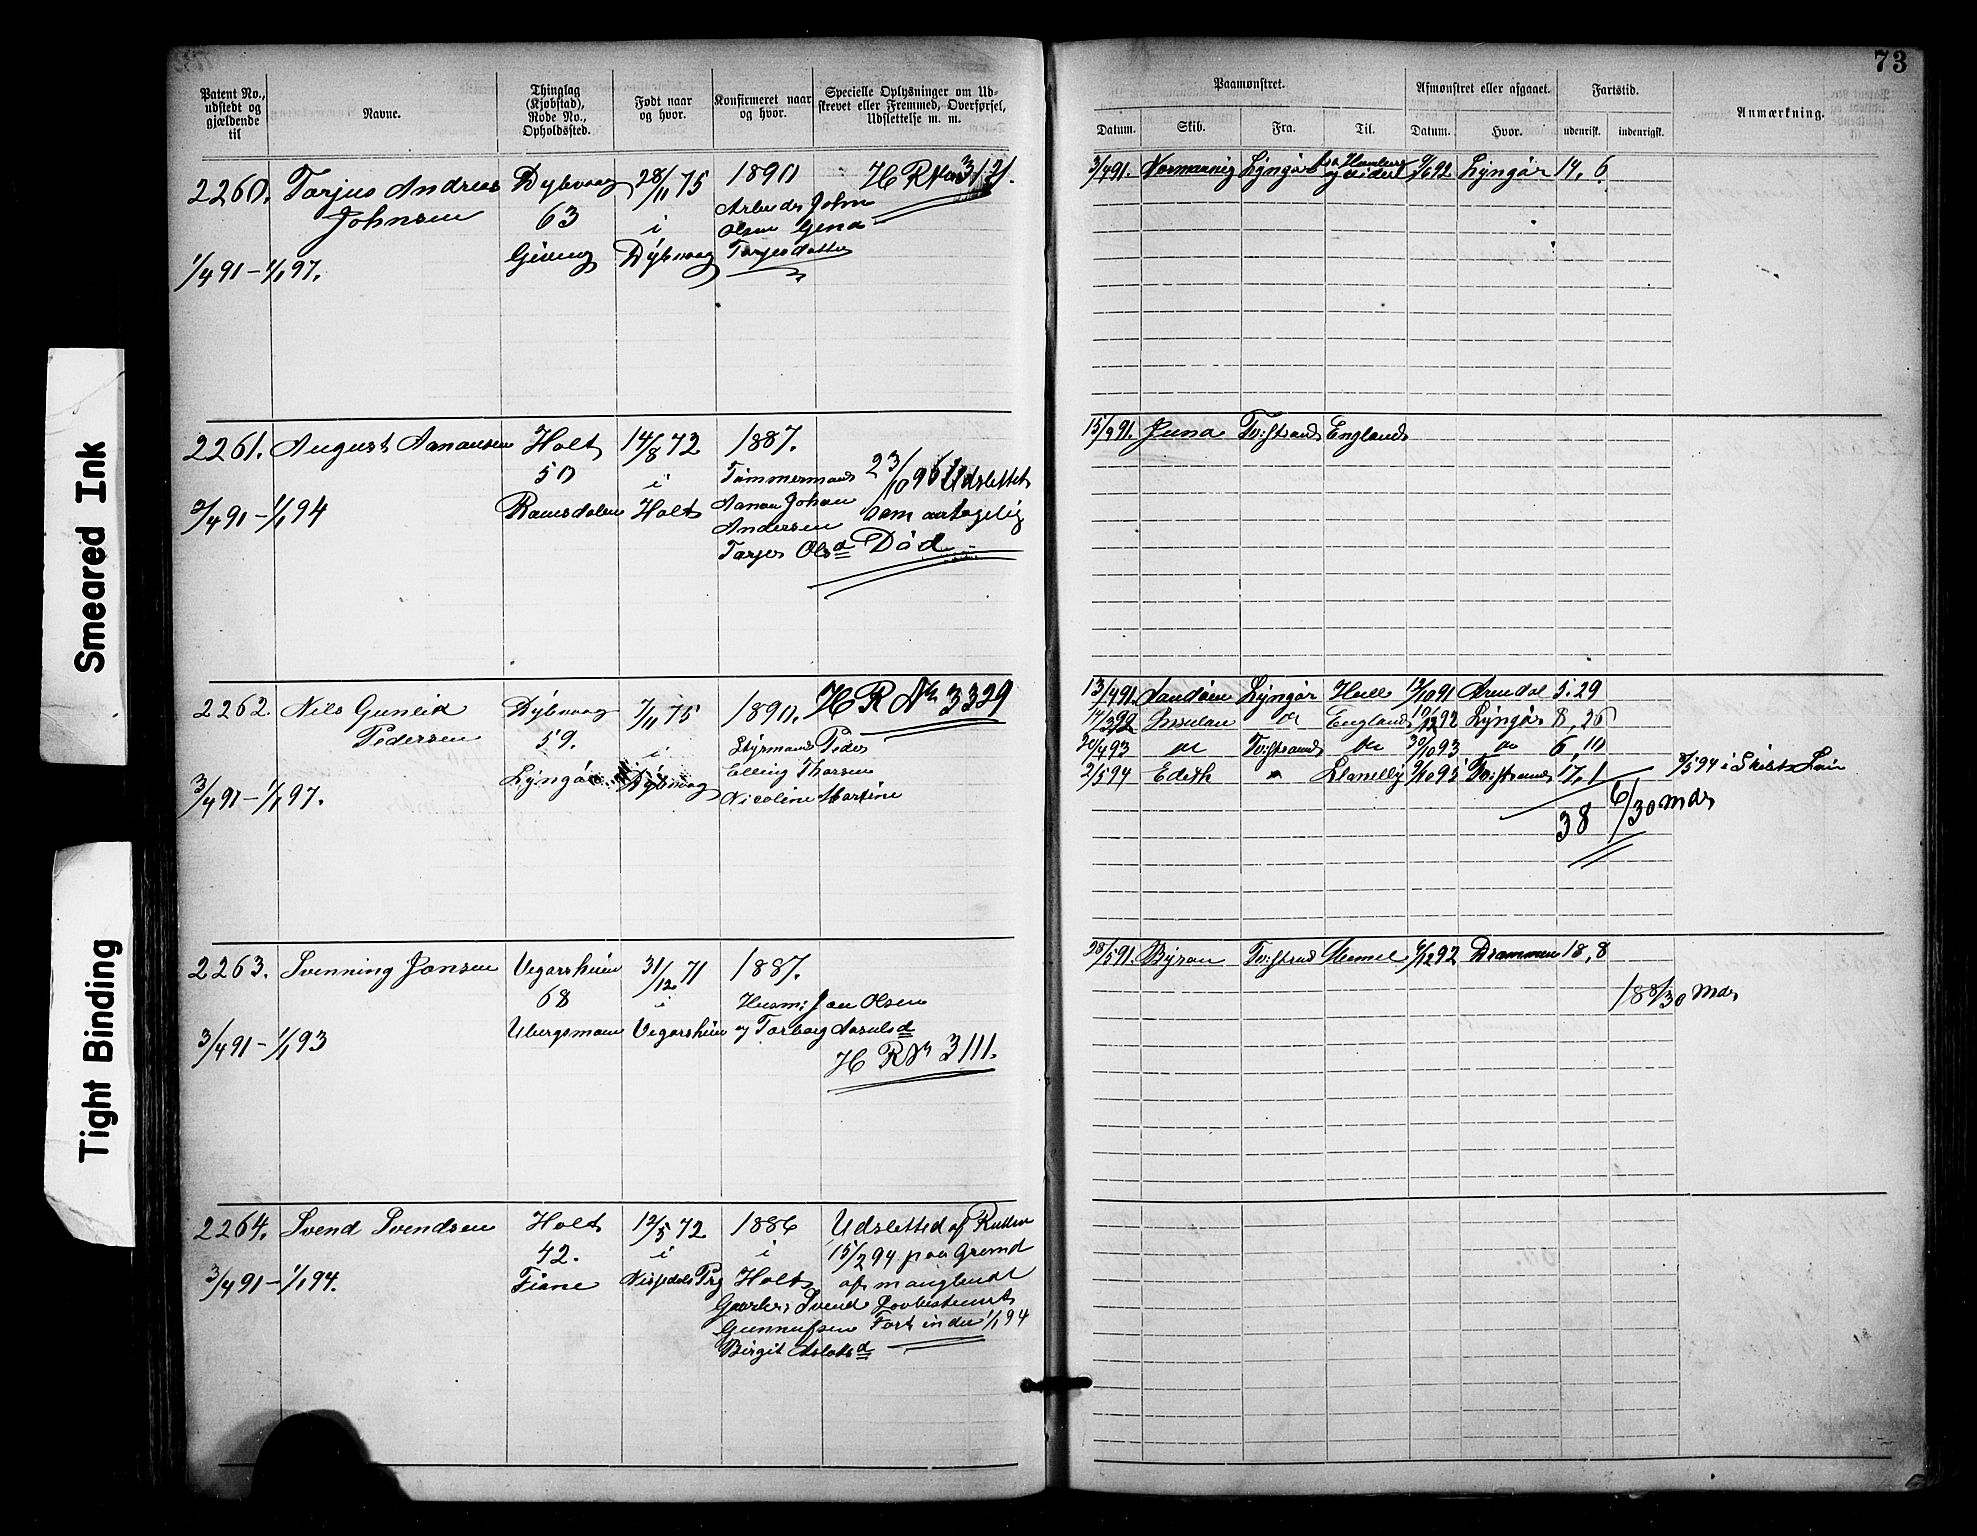 73
Patent No., udstedt og gjældende til
Navne.
Thinglag (Kjøbstad), Rode No., Opholdssted.
Født naar og hvor.
Konfirmeret naar og hvor.
Specielle Oplysninger om Udskrevet eller Fremmed, Overførsel, Udslettelse m. m.
Paamønstret.
Afmønstret eller afgaaet.
Fartstid.
Anmærkning.
Datum. Skib. Fra. Til. Datum. Hvor. udenrigsk. indenrigsk.
2260. Tarjus Andreas Dybvaag 28/11 75 1890 H R No 3121.
Johnsen 63 i Arbeider John
Olsen Gina
1/4 91 – 1/1 97. Gjeving Dybvaag Tarjesdatter
3/4 91. Normanvig Lyngør Hamburg 9/6 92 Lyngør 14, 6
2261. August Aanansen Holt 14/8 72 1887.
50 i Tømmermand 23/10 96 Udslettet
3/4 91 – 1/1 94 Ramsdalen Holt Aanon Johan som antagelig
Andersen
Tarjer Olsd Død
15/4 91. Juno Tvistrand England
2262. Nils Guneid Dybvaag 7/11 75 1890. H R No 3329
Pedersen 59. i Styrmand Peder
Elling Thorsen
3/4 91 – 1/1 97. Lyngør Dybvaag Nicoline Martine
13/4 91. Sandøen Lyngør Hull 12/10 91 Arendal 5. 29
14/3 92 do England 10/12 92 Lyngør 8, 26
20/4 93 do Tvistrand do 30/10 93 do 6, 10
2/5 94 Edith " Llanelly 9/10 95 Tvistrand 17, 1
38 6/30 Mdr
2263. Svenning Jansen Vegarsheien 31/12 71 1887.
68 i Husm: Jan Olsen
3/4 91 – 1/1 93 Ubergsmoen Vegarsheien og Torborg Aasulsd
H R No 3111.
28/5 91. Byron Tvistrand Memel 6/12 92 Drammen 18, 8
18 8/30 Mdr
2264. Svend Svendsen Holt 12/5 72 1886 Udslettet af Rullen
42. i i 15/2 94 paa Grund
3/4 91 – 1/1 94. Fiane Nissedals Prg Holt af manglende
Gaarbr: Svend Lovbestemt
Gunnufsen Fart inden 1/1 94
Birgit Aslaksd
Smeared Ink
Tight Binding